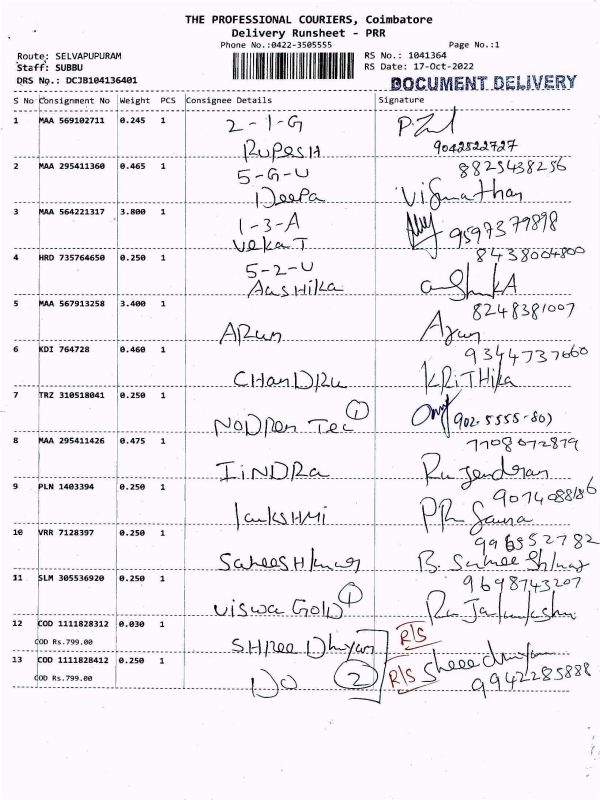 THE PROFESSIONAL COURIERS, Coimbatore
Delivery Runsheet - PRR
Phone No.:0422-3505555 Page No.:1
Route: SELVAPUPURAM RS No.: 1041364
Staff: SUBBU RS Date: 17-Oct-2022
DRS No.: DCJB104136401 DOCUMENT DELIVERY
S No Consignment No Weight PCS Consignee Details Signature
1 MAA 569102711 0.245 1 2-1-G
RUPESH 9042522727
2 MAA 295411360 0.465 1 5-G-U 8825438256
Deepa Viswanathan
3 MAA 564221317 3.800 1 1-3-A 9597379898
VeKaT
4 HRD 735764650 0.250 1 5-2-U 8438004800
AasHika
5 MAA 567913258 3.400 1 8248381007
ARun Arun
6 KDI 764728 0.460 1 9344737660
CHanDRu KRiTHika
7 TRZ 310518041 0.250 1 1
NoDren Tec
8 MAA 295411426 0.475 1 7708072879
IiNDRa Rajendran
9 PLN 1403394 0.250 1 9074088186
LaksHMi
10 VRR 7128397 0.250 1
SatheesHkumar
11 SLM 305536920 0.250 1 1 9698743207
Viswa GolD
12 COD 1111828312 0.030 1 SHree Dhyan R/S
COD Rs.799.00
13 COD 1111828412 0.250 1 Do 2 R/S
COD Rs.799.00 9942285888